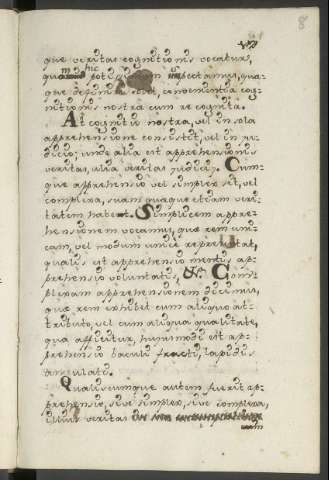 8
que veritas cognitionis vocatur,
hic
que definiri convenientia cog-
nitionis nostra cum re cognita.
At cognitio nostra, vel in sola
apprehensione consistit, vel in iu-
dicio; unde alia est apprehensionis
veritas, alia veritas iudicij. Cum-
que apprehensio vel simplex sit, vel
complexa, suam quaque etiam veri-
tatem habent. Simplicem appre-
hensionem vocamus, quæ rem uni-
cam, vel modum unicè repræsentat,
qualis est apprehensio mentis, ap-
prehensio voluntatis, &c. Com-
plexam apprehensionem dicimus,
quæ rem exhibet cum aliquo at-
tributo, vel cum aliqua qualitate,
qua afficitur, huiusmodi est ap-
prehensio baculi fracti, lapidis
angulati.
Qualiscumque autem fuerit ap-
prehensio, sive simplex, sive complexa,
illius veritas
cum